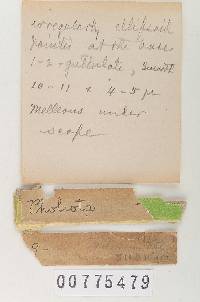 irregularly ellipsoid
pointed at the base
1-2-guttulate, smooth
10-11 x 4-5 µ
Melleous under
scope
Pholiota
9-
00775479